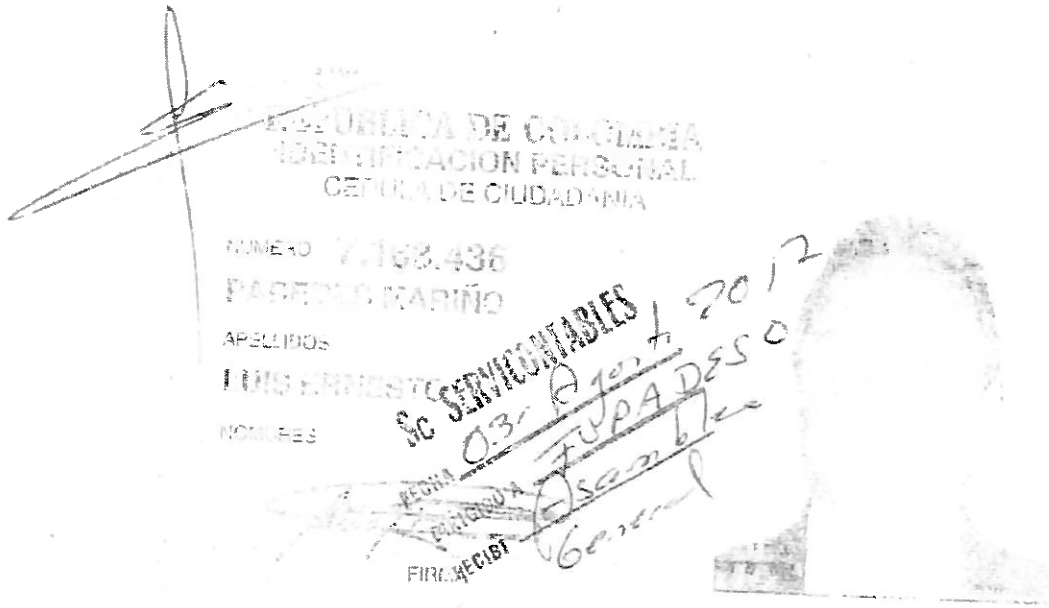 REPUBLICA DE COLOMBIA
IDENTIFICACION PERSONAL
CEDULA DE CIUDADANIA
NUMERO 7.168.436
NARIÑO
APELLIDOS
LUIS ERNESTO
NOMBRES
Sc SERVICONTABLES
FECHA 03- Agosto 2012
DIRIGIDO A FUPADESO
Asamblea
General
RECIBI